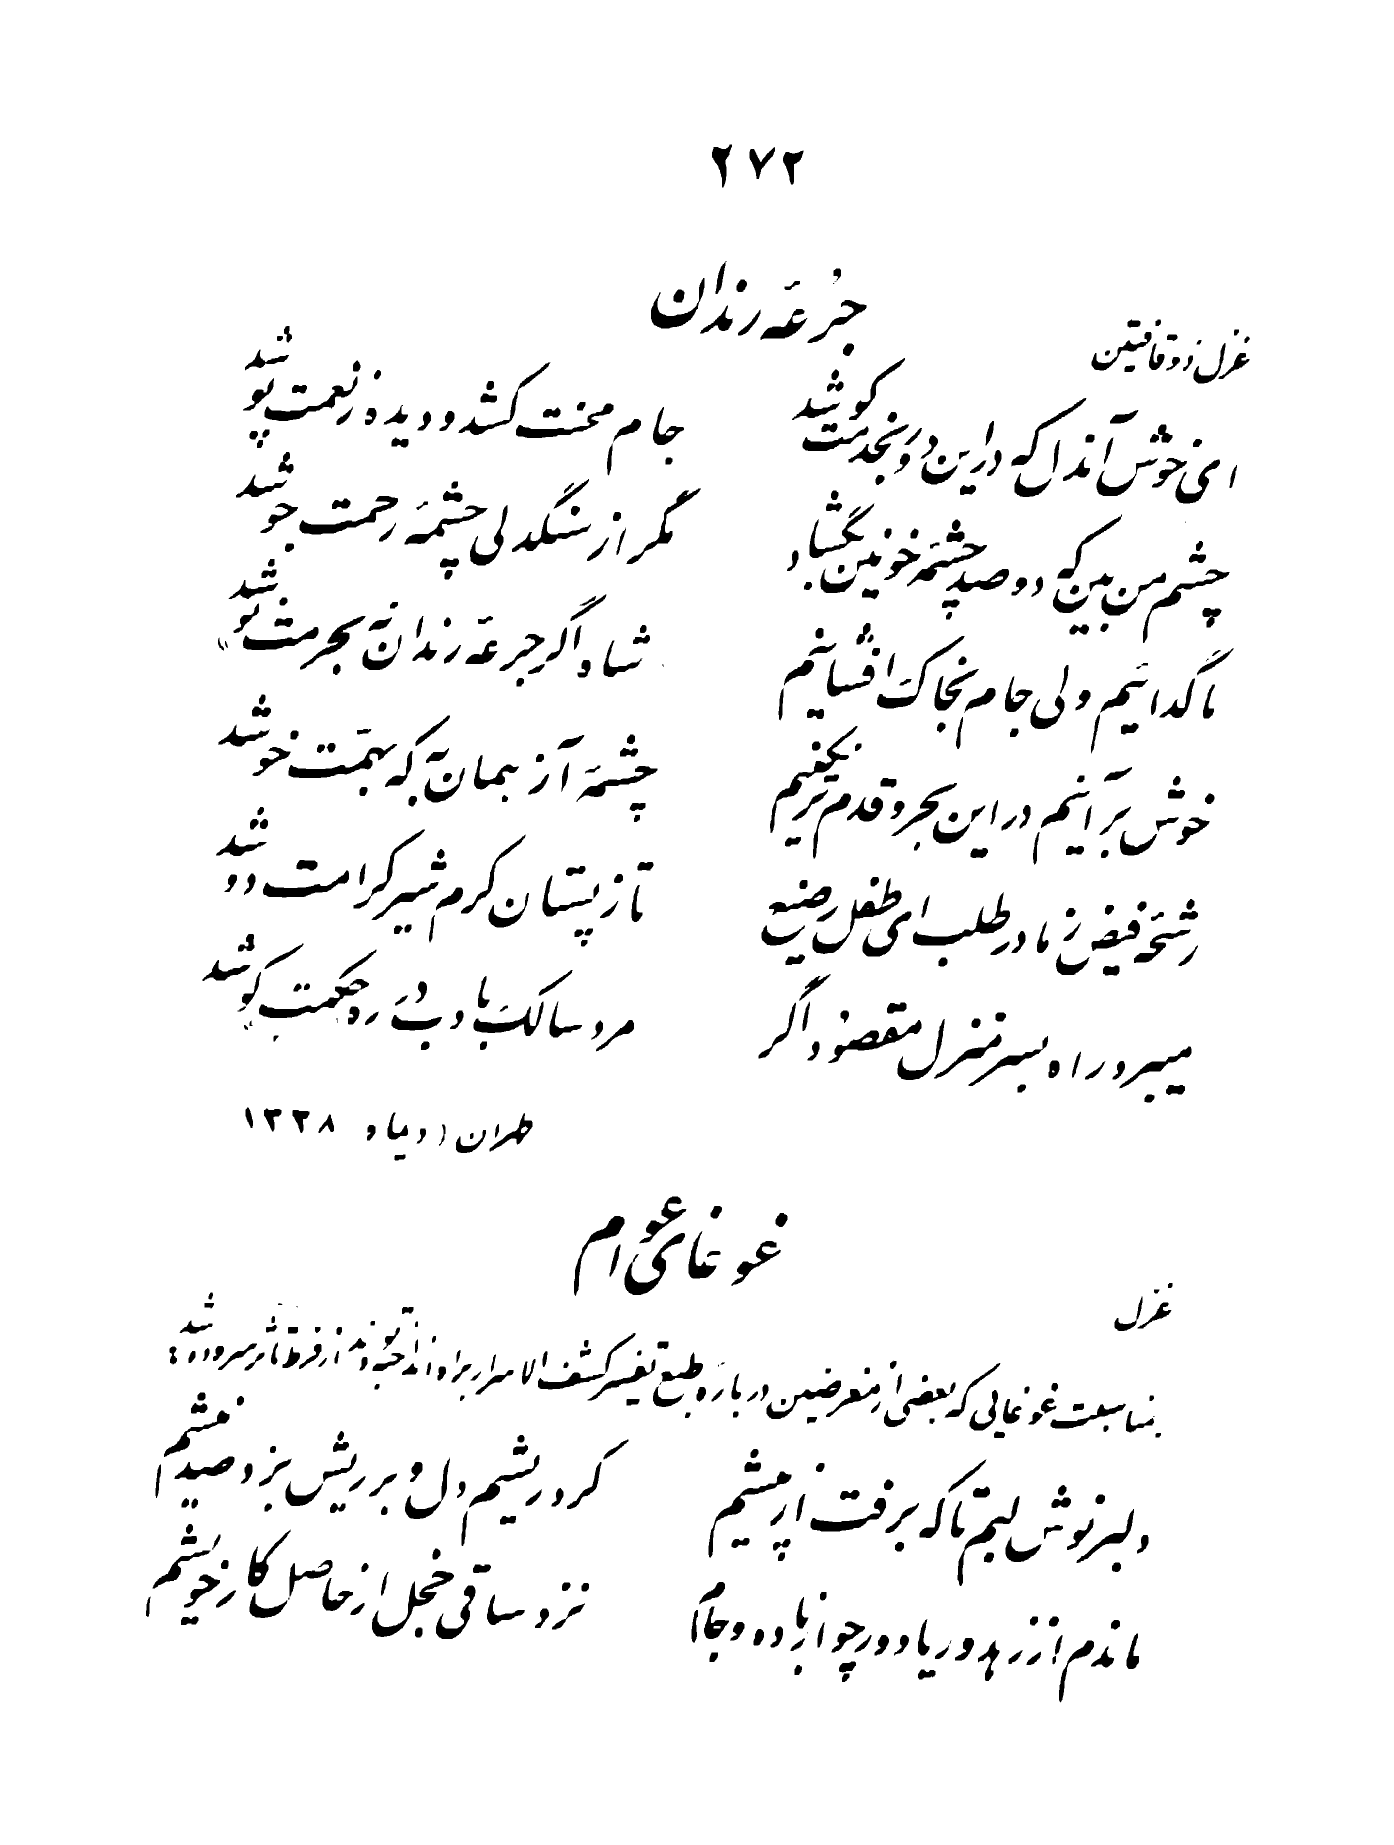 ۲۷۲
جُرعهٔ رندان
غزل ذوقافیتین
ای خوش آندل که در این دور بخدمت کوشد
جام محنت کشد و دیده ز نعمت پوشد
چشم من بین که دو صد چشمهٔ خونین بگشاد
مگر از سنگدلی چشمهٔ رحمت جوشد
ما گدائیم ولی جام بخاک افشانیم
شاه اگر جرعهٔ رندان نه بحرمت نوشد
خوش برآنیم در این بحر و قدم تر نکنیم
چشمه آنرا نه که بهمّت خوشد
رشحهٔ فیض ز مادر طلب ای طفل رضیع
تا ز پستان کرم شیر کرامت دوشد
میبرد راه بسر منزل مقصود اگر
مرد سالک بادب در ره حکمت کوشد
طهران دیماه ۱۳۳۸
غوغای عوام
غزل
بمناسبت غوغائی که بعضی از معرضین درباره طبع تفسیر کشف الاسرار براه انداخته بودند از فرط تأثر سروده شد:
دلبر نوش لبم تا که برفت از پیشم
کرد ریشم دل و بر ریش بزد صد نیشم
ماندم از زهد و ریا دور چو از باده و جام
نزد ساقی خجل از حاصل کار خویشم